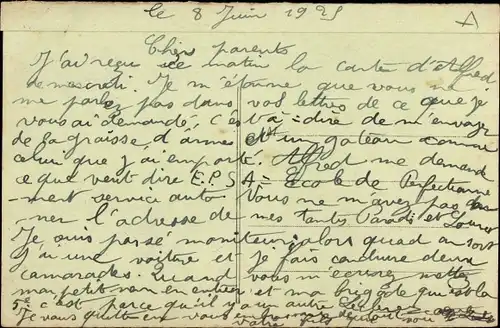 le 8 Juin 1925
A
Chers parents
J'ai reçu ce matin la carte d'Alfred
de mercredi. Je m'étonne que vous ne
me parlez pas dans vos lettres de ce que je
vous ai demandé, c'est à = dire de m'envoyer
de la graisse d'armes et un gateau comme
celui que j'ai emporté. Alfred me demande
ce que veut dire E.P.S.A = Ecole de Perfectionne
ment service auto Vous ne m'avez pas
ner l'adresse de mes tantes et
Je suis passé moniteur, alors quad on sort
j'ai une voiture et je fais conduire deux
camarades. Quand vous m'écrirez mettez
mon petit nom en entier et ma brigade qui est la
5e c'est parce qu'il y a un autre
Je vous quitte en vous embrassant de tout mon
votre fils